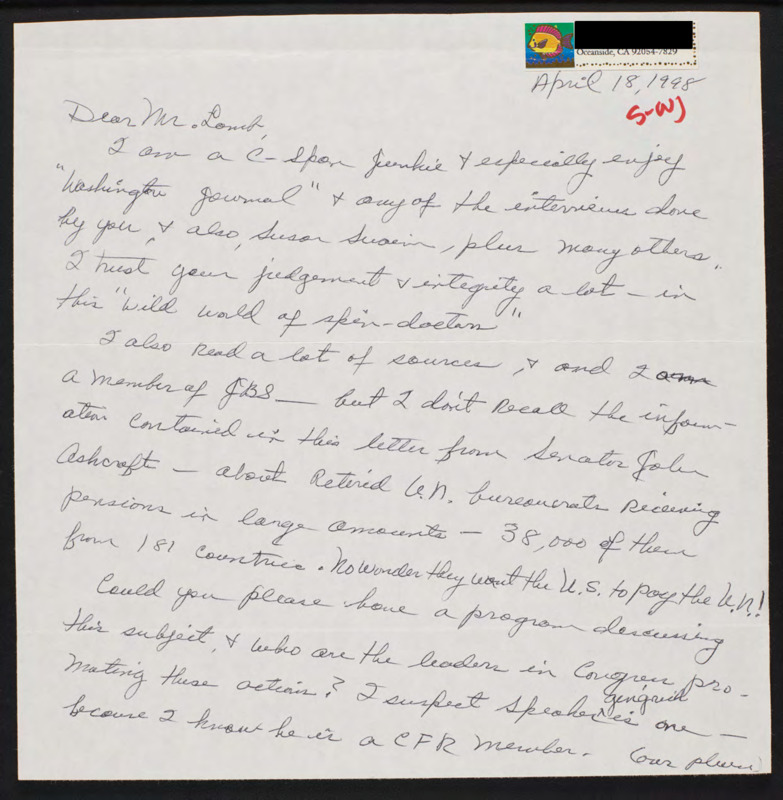 Oceanside, CA 92054-7829
April 18, 1998
S-WJ
Dear Mr. Lamb,
I am a C-Span junkie & especially enjoy
"Washington Journal" & any of the interviews done
by you, & also, Susan Swain, plus many others.
I trust your judgement & integrity a lot – in
this "wild world of spin-doctors"
I also read a lot of sources, & and I am
a member of JBS – but I don't recall the inform-
ation contained in this letter from Senator John
Ashcroft – about retired U.N. bureaucrats receiving
pensions in large amounts – 38,000 of them
from 181 countries. No wonder they want the U.S. to pay the U.N.!
Could you please have a program discussing
this subject, & who are the leaders in Congress pro-
moting these actions? I suspect Speaker Gingrich is one –
because I know he is a CFR member. (over please)